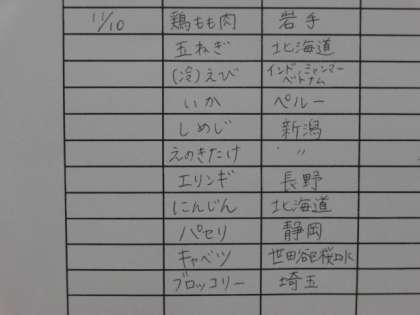 11/10 鶏もも肉 岩手
玉ねぎ 北海道
(冷)えび インド・ミャンマー ベトナム
いか ペルー
しめじ 新潟
えのきたけ 〃
エリンギ 長野
にんじん 北海道
パセリ 静岡
キャベツ 世田谷区桜
ブロッコリー 埼玉